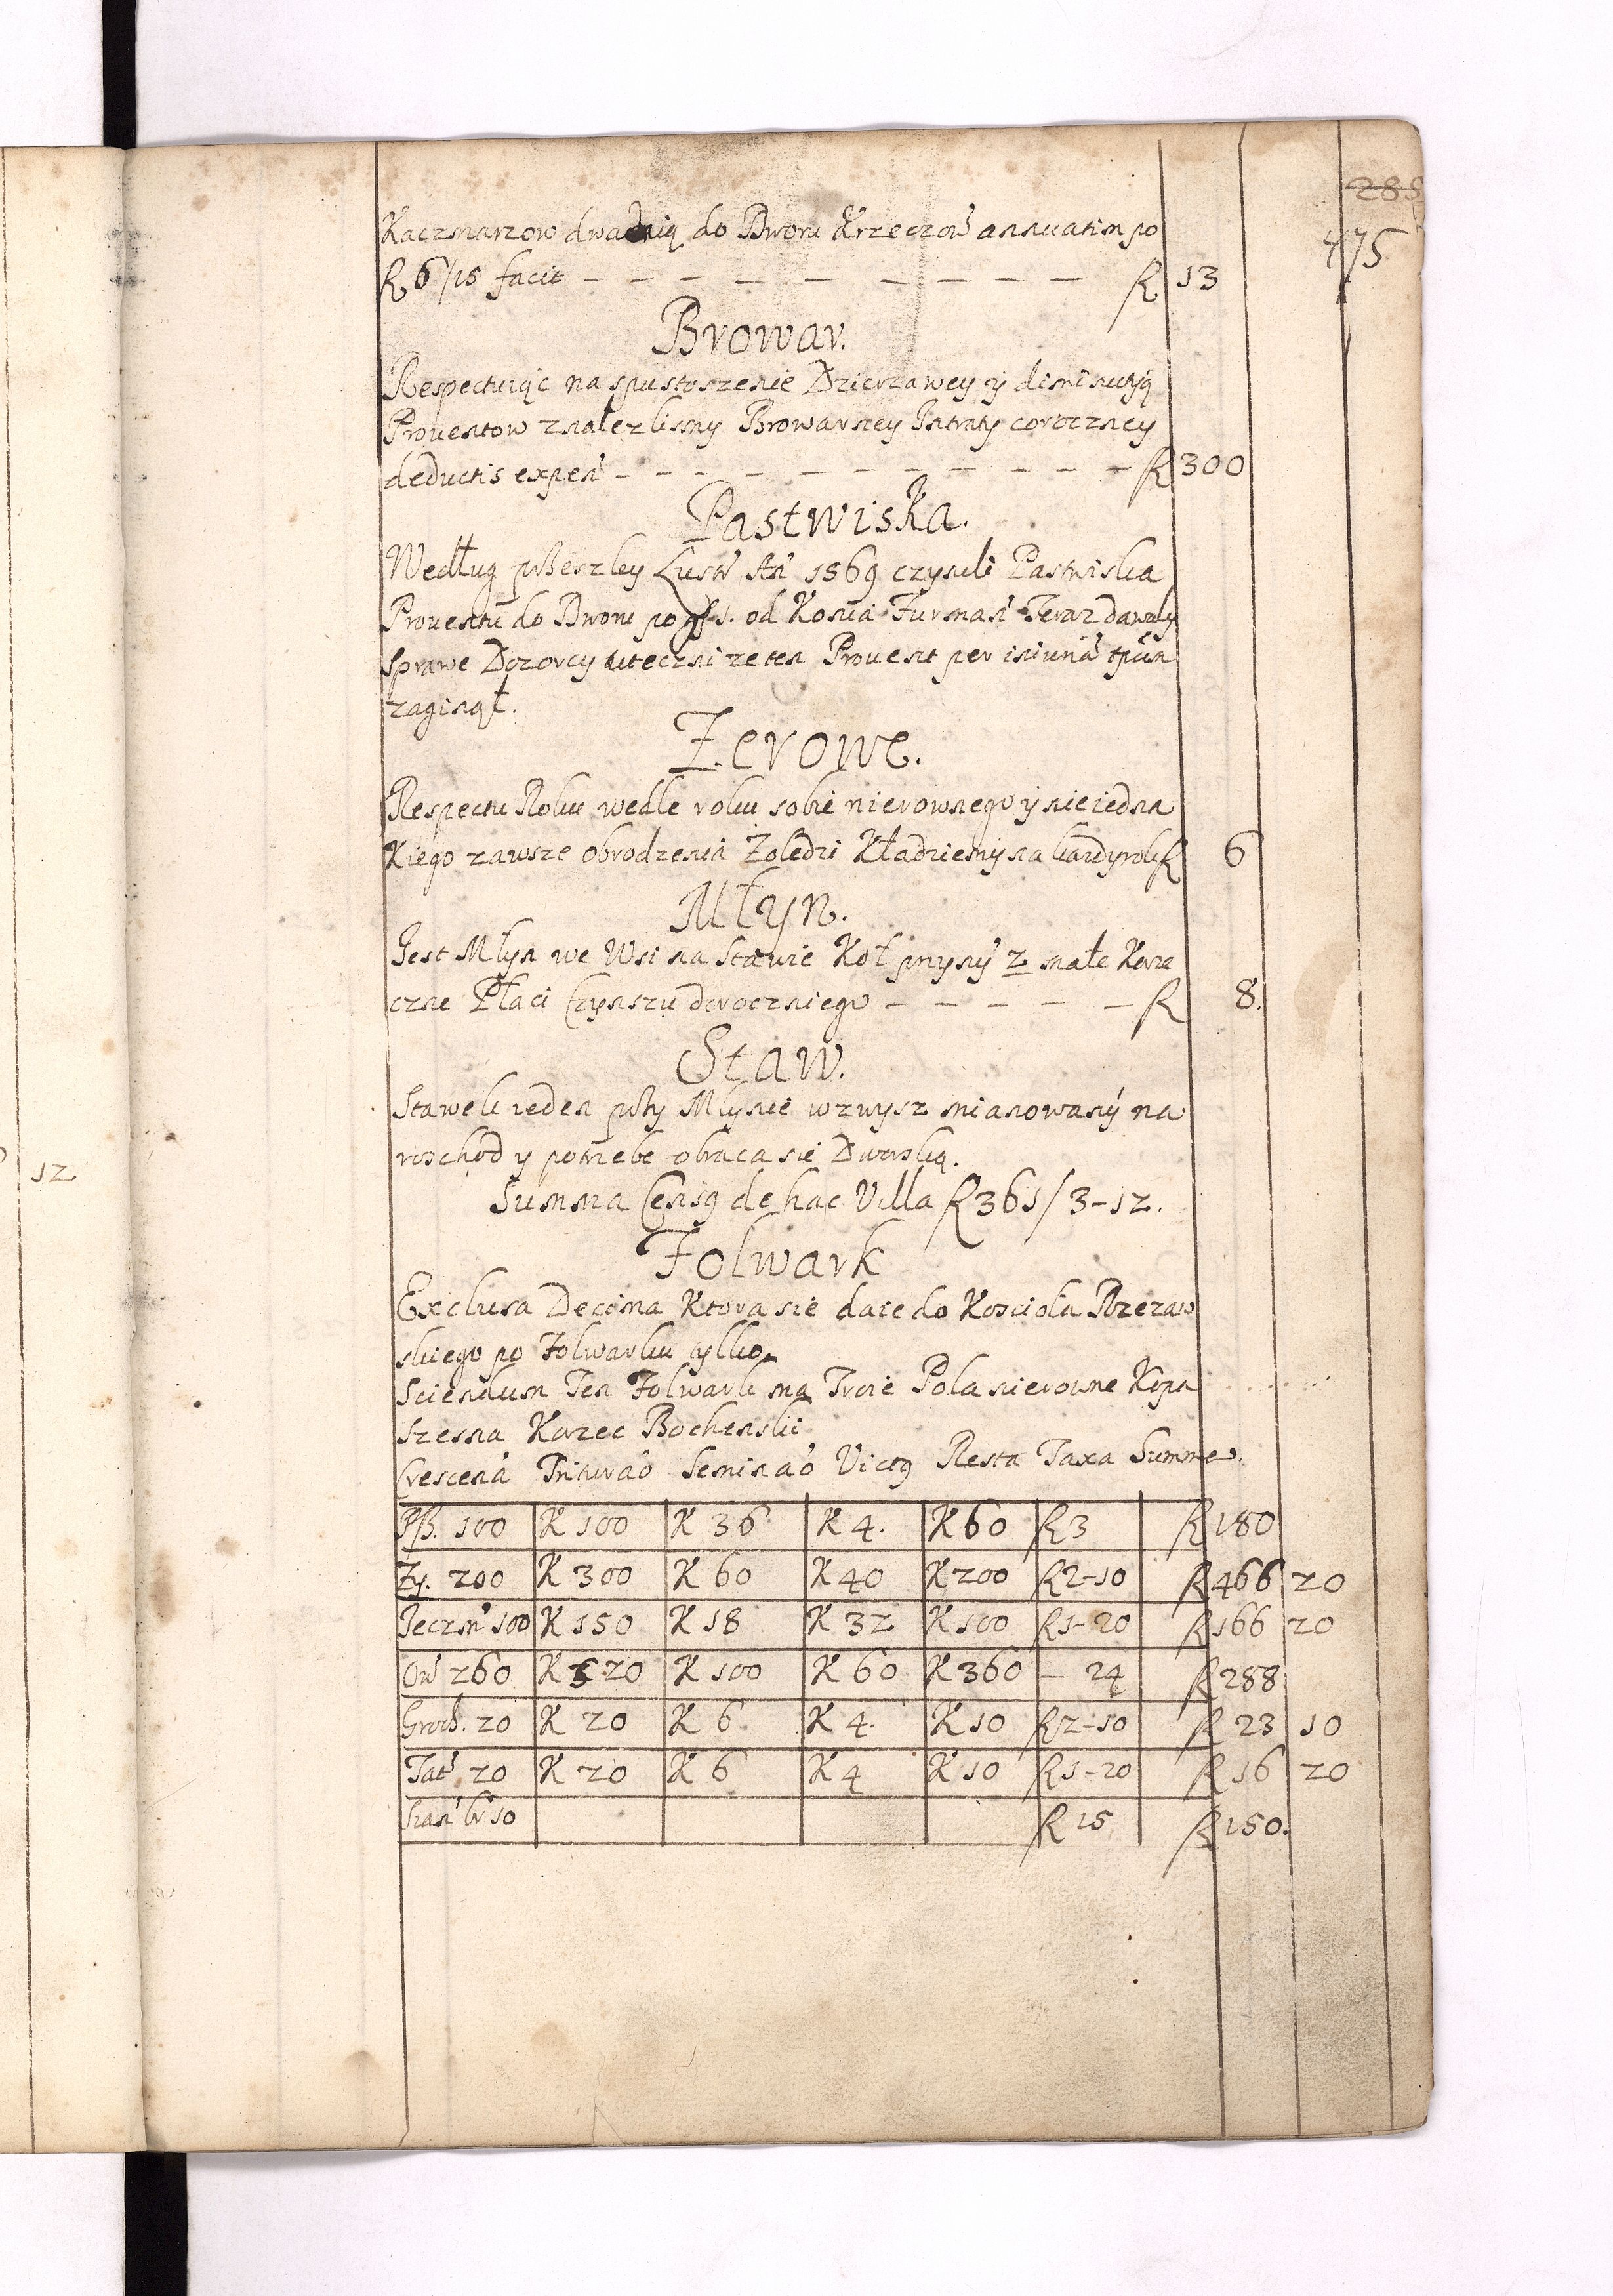 285
475
Kaczmarzow dwa daią do Dworu Krzeczow annuatim po
R 6/15 facit — — — — — — — — R 13
Browar.
Respectuiąc na spustoszenie Dzierzawey y diminutią
Prouentow znalezlismy Browarney Intraty coroczney
deductis expen — — — — — — — — R 300
Pastwiska.
Według przeszley Lustr An 1569 czynili Pastwiska
Prouentu do Dworu po 1. od Konia Furman Teraz dawaly
Sprawe Dozorcy ze ten Prouent per iniuria tpum
zaginął.
Zerowe.
Respectu Roku wedle roku sobie nierownego y nieiedna
kiego zawsze obrodzenia Zolędzi Kładziemy na kazdy rok R 6
Młyn.
Jest Mlyn we Wsi na Stawie Koł z małe Korze
czne Płaci Czynszu doroczniego — — — — — R 8.
Staw.
Stawek ieden przy Mlynie wzwysz mianowany na
roschod y potrzebe obraca sie Dworską.
Summa Censq de hac Villa R 361/3-12.
Folwark
Exclusa Decima Ktora sie daie do Kosciola Rzezaw
skiego po Folwarku tylko
Sciendum Ten Folwark ma Troie Pola nierowne Kopa
Szesna Korzec Bochenski
Crescena Triturao Seminao Victq Resta Taxa Summe.
Psz. 100 K 100 K 36 K 4. K 60 R 3 R 180
Zy. 200 K 300 K 60 K 40 K 200 R 2-10 R 466 20
Jeczm 100 K 150 K 18 K 32 K 100 R 1-20 R 166 20
Ow 260 K 520 K 100 K 60 K 360 — 24 R 288
Groch. 20 K 20 K 6 K 4. K 10 R 2-10 R 23 10
Tat 20 K 20 K 6 K 4 K 10 R 1-20 R 16 20
Sian br 10 R 15 R 150.
12